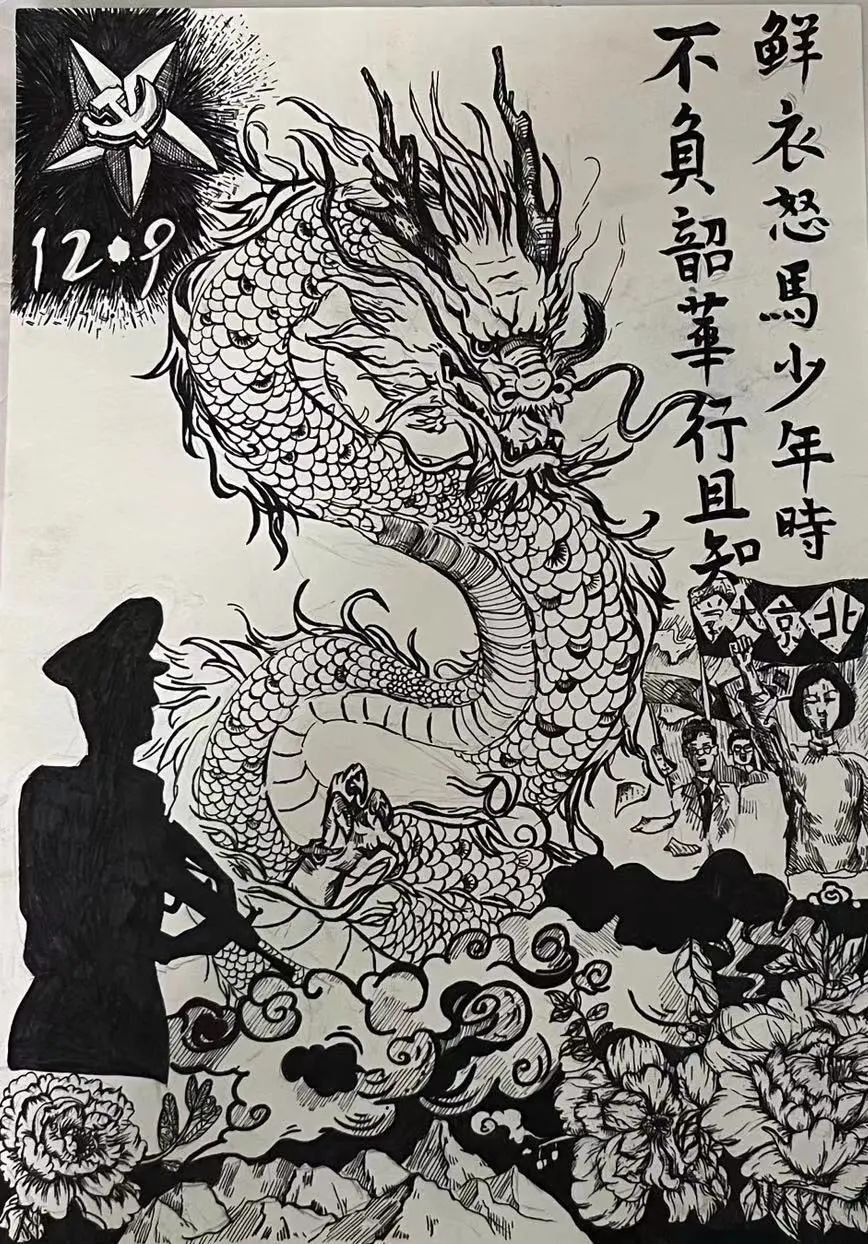 鮮衣怒馬少年時
不負韶華行且知
12·9
北京大學